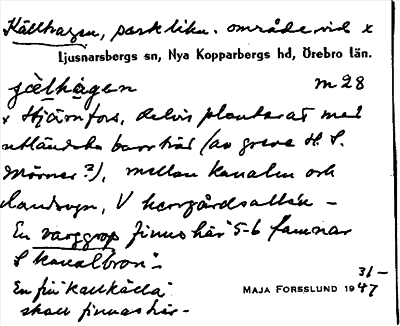 Källhagen, parklikn. område vid x
Ljusnarsbergs sn, Nya Kopparbergs hd, Örebro län.
jälhagen M 28
x Stjärnfors, delvis planterat med
utländska barrträd (av greve H. S.
Mörner?), mellan kanalen och
landsvgn, V herrgårdsallén –
En varggrop finns här "5-6 famnar
S kanalbron".
En fin "kallkälla"
skall finnas här –
31–
MAJA FORSSLUND 1947